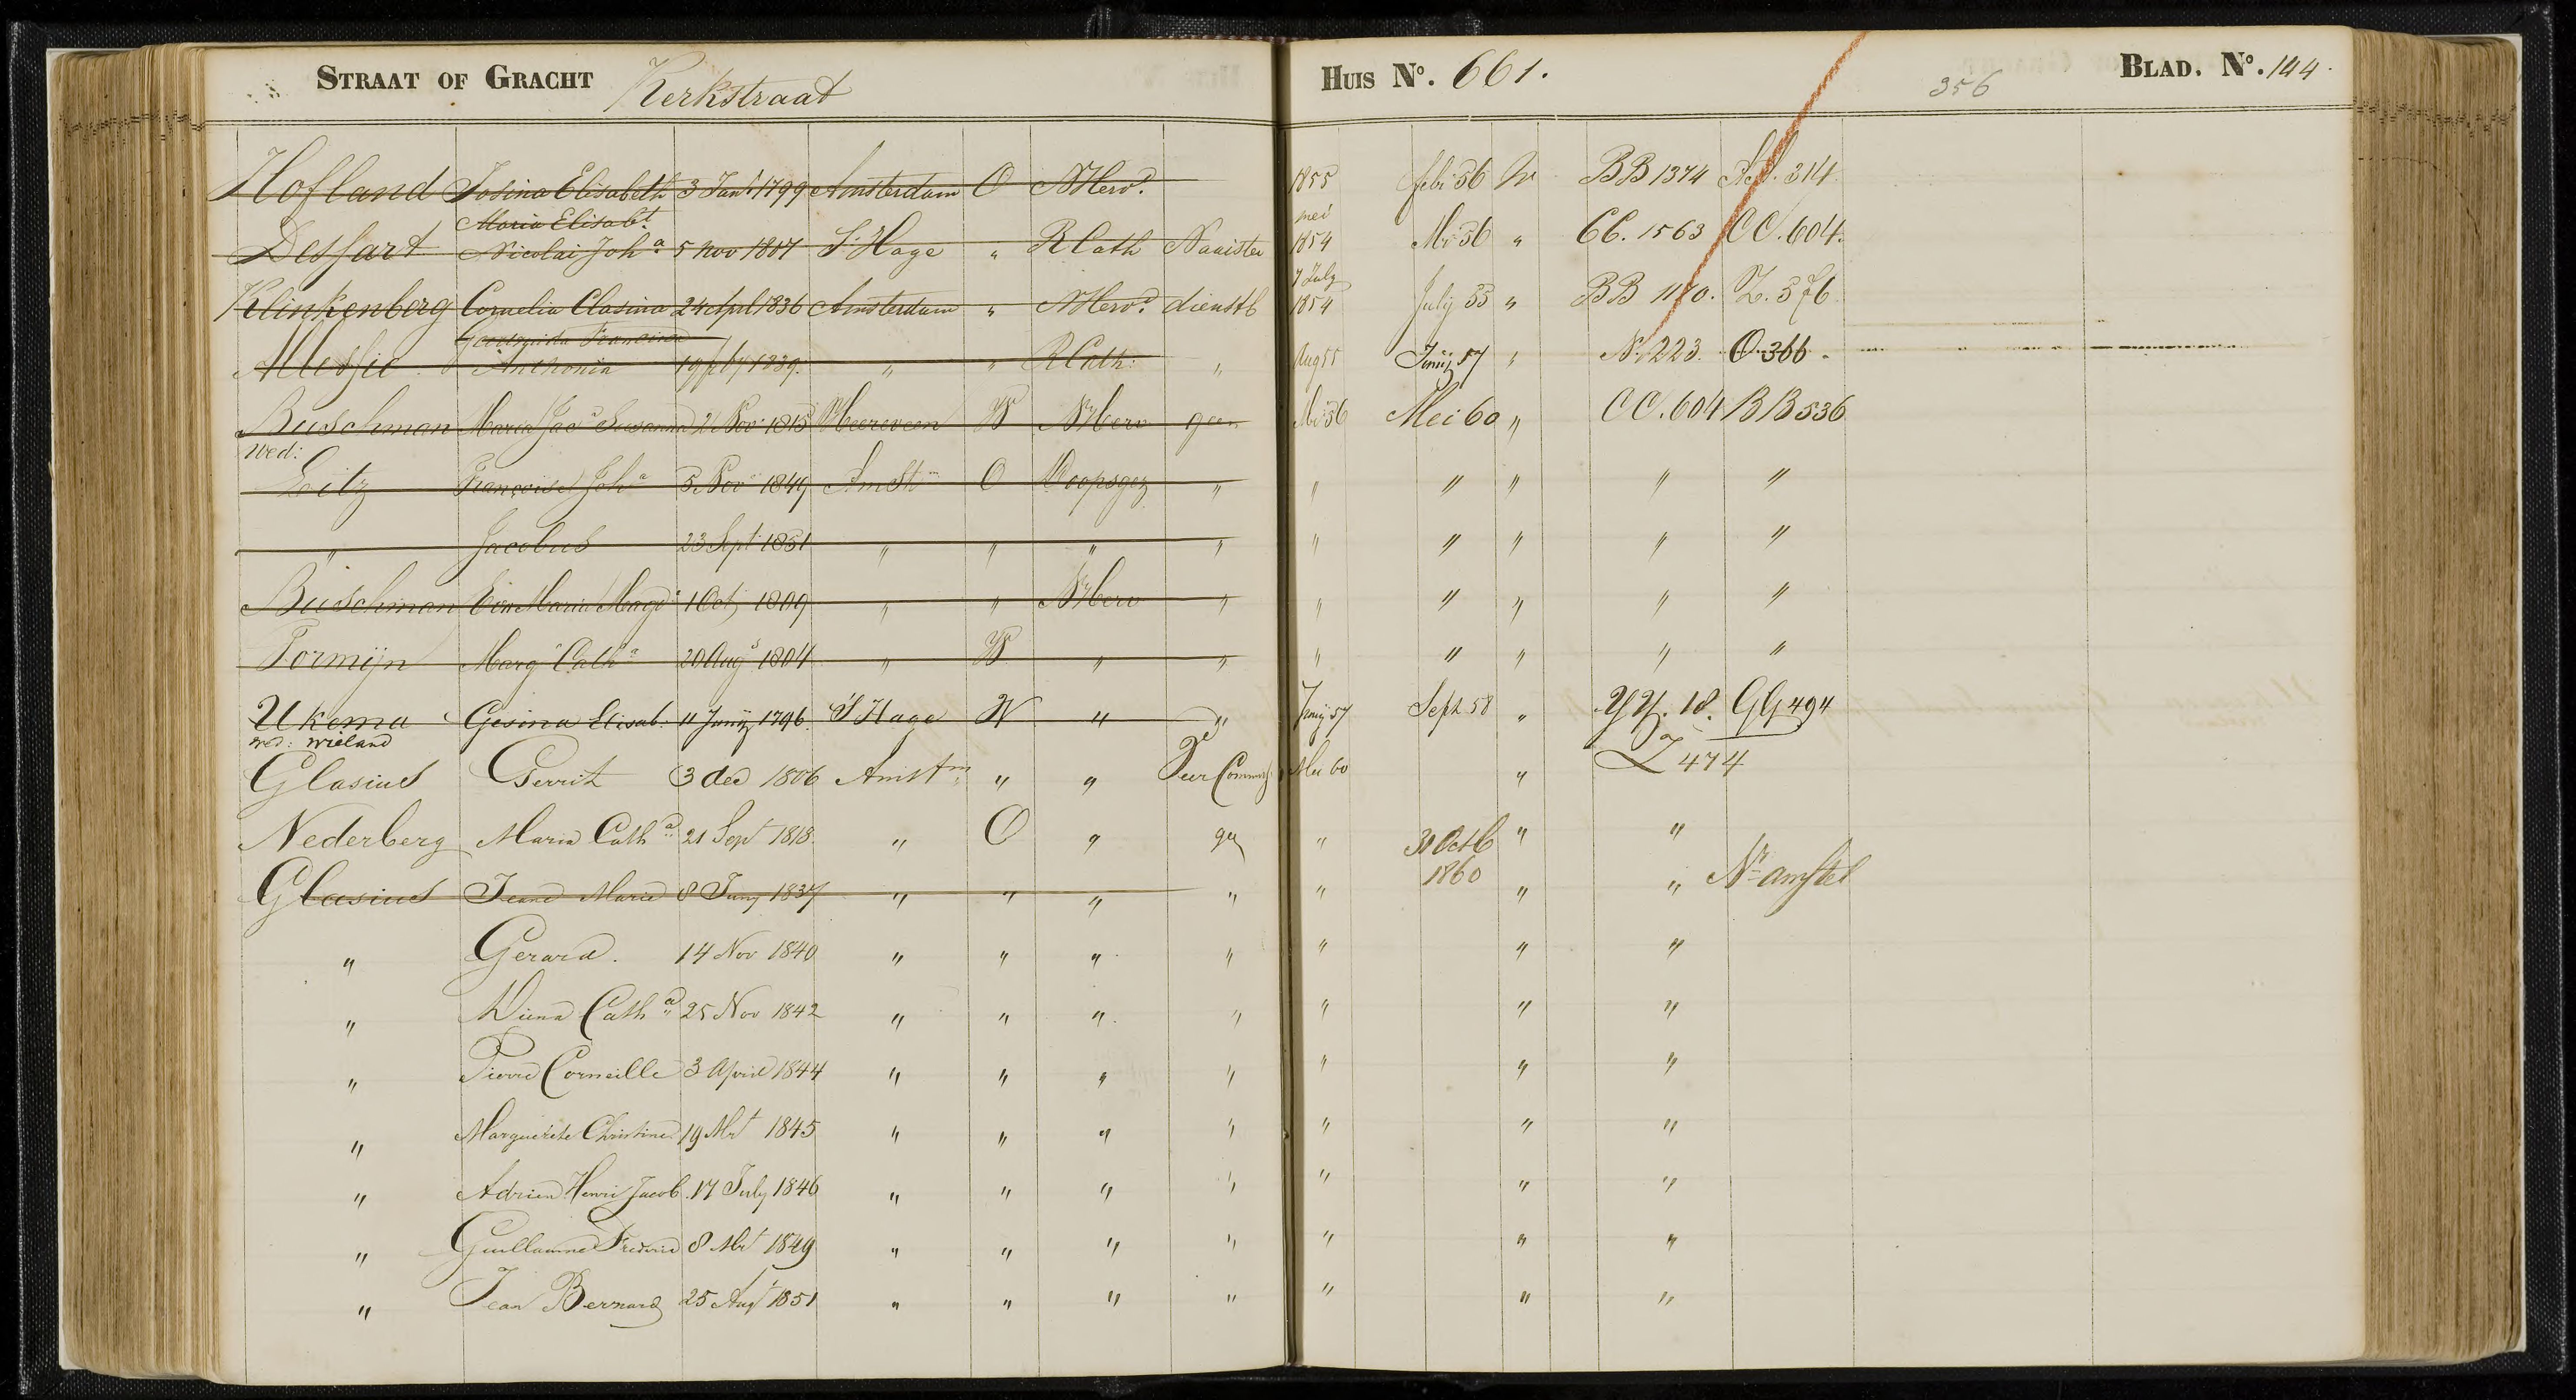 STRAAT OF GRACHT Kerkstraat HUIS No. 661. 356 BLAD. No. 144.
Hofland Josina Elisabeth 3 Jan 1799 Amsterdam O NHervd. 1855 febr 56 W BB 1374 314
Maria Elisabt mei
Dessart Nicolai Joha 5 nov 1807 S'Hage " RCath Naaister 1854 Mei 56 " CC. 1563 CC. 604.
7 July
Klinkenberg Cornelia Clasina 24 Apl 1836 Amsterdam " NHervd. dienstb 1854 July 55 " BB 1170. Z. 576
Geertruida Francina
Messie Anthonia 19 1839. " " RCath: " Aug 55 Junij 57 " N. 1223. O 366.
Buschman Maria Jaca Susanna 21 Nov 1813 Heereveen W NHerv geen Mei 56 Mei 60 " CC. 604 BB 536
wed:
Leitz Françoise Joha 5 Nov 1849 Amstm O Doopsgez " " " " " "
" Jacobus 23 Sept 1851 " " " " " " " " "
Buschman Eva Maria Magda 1 Oct 1809 " " NHerv " " " " " "
Formijn Marga Catha 20 Aug 1804 " W " " " " " " "
Ukema Gesina Elisab. 11 Junij 1796. S'Hage W " " Junij 57 Sept 58 " YY. 18. GG 494
wed: Wieland
Glasius Gerrit 3 dec 1806 Amstm " " Mei 60 " Z 474
Nederberg Maria Catha 21 Sept 1818. " O " " 31 Octb " "
Glasius Jeane Marie 8 Juny 1837 " " " " " 1860 " " Nr Amstel
" Gerard. 14 Nov 1840 " " " " " " "
" Diena Catha 25 Nov 1842 " " " " " " "
" Pierre Corneille 3 April 1844 " " " " " " "
" Marguerite Christine 19 Mrt 1845 " " " " " " "
" Adrien Henri Jacob. 17 July 1846 " " " " " " "
" Guillaume Frederic 8 Mrt 1849 " " " " " " "
" Jean Bernard 25 Augt 1851 " " " " " " "